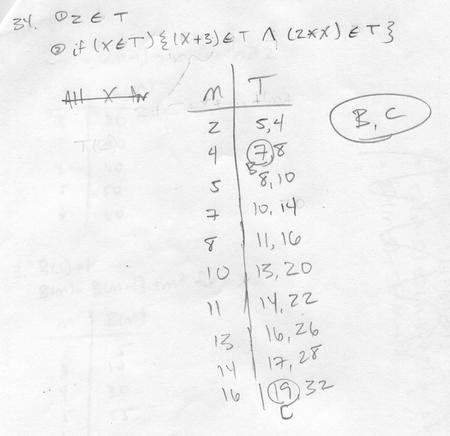 34. ① 2 ∈ T
② if (X ∈ T) { (X+3) ∈ T ∧ (2*X) ∈ T }
All X
M T
2 5, 4
B, C
4 7, 8
B
5 8, 10
7 10, 14
8 11, 16
10 13, 20
11 14, 22
13 16, 26
14 17, 28
16 19, 32
C